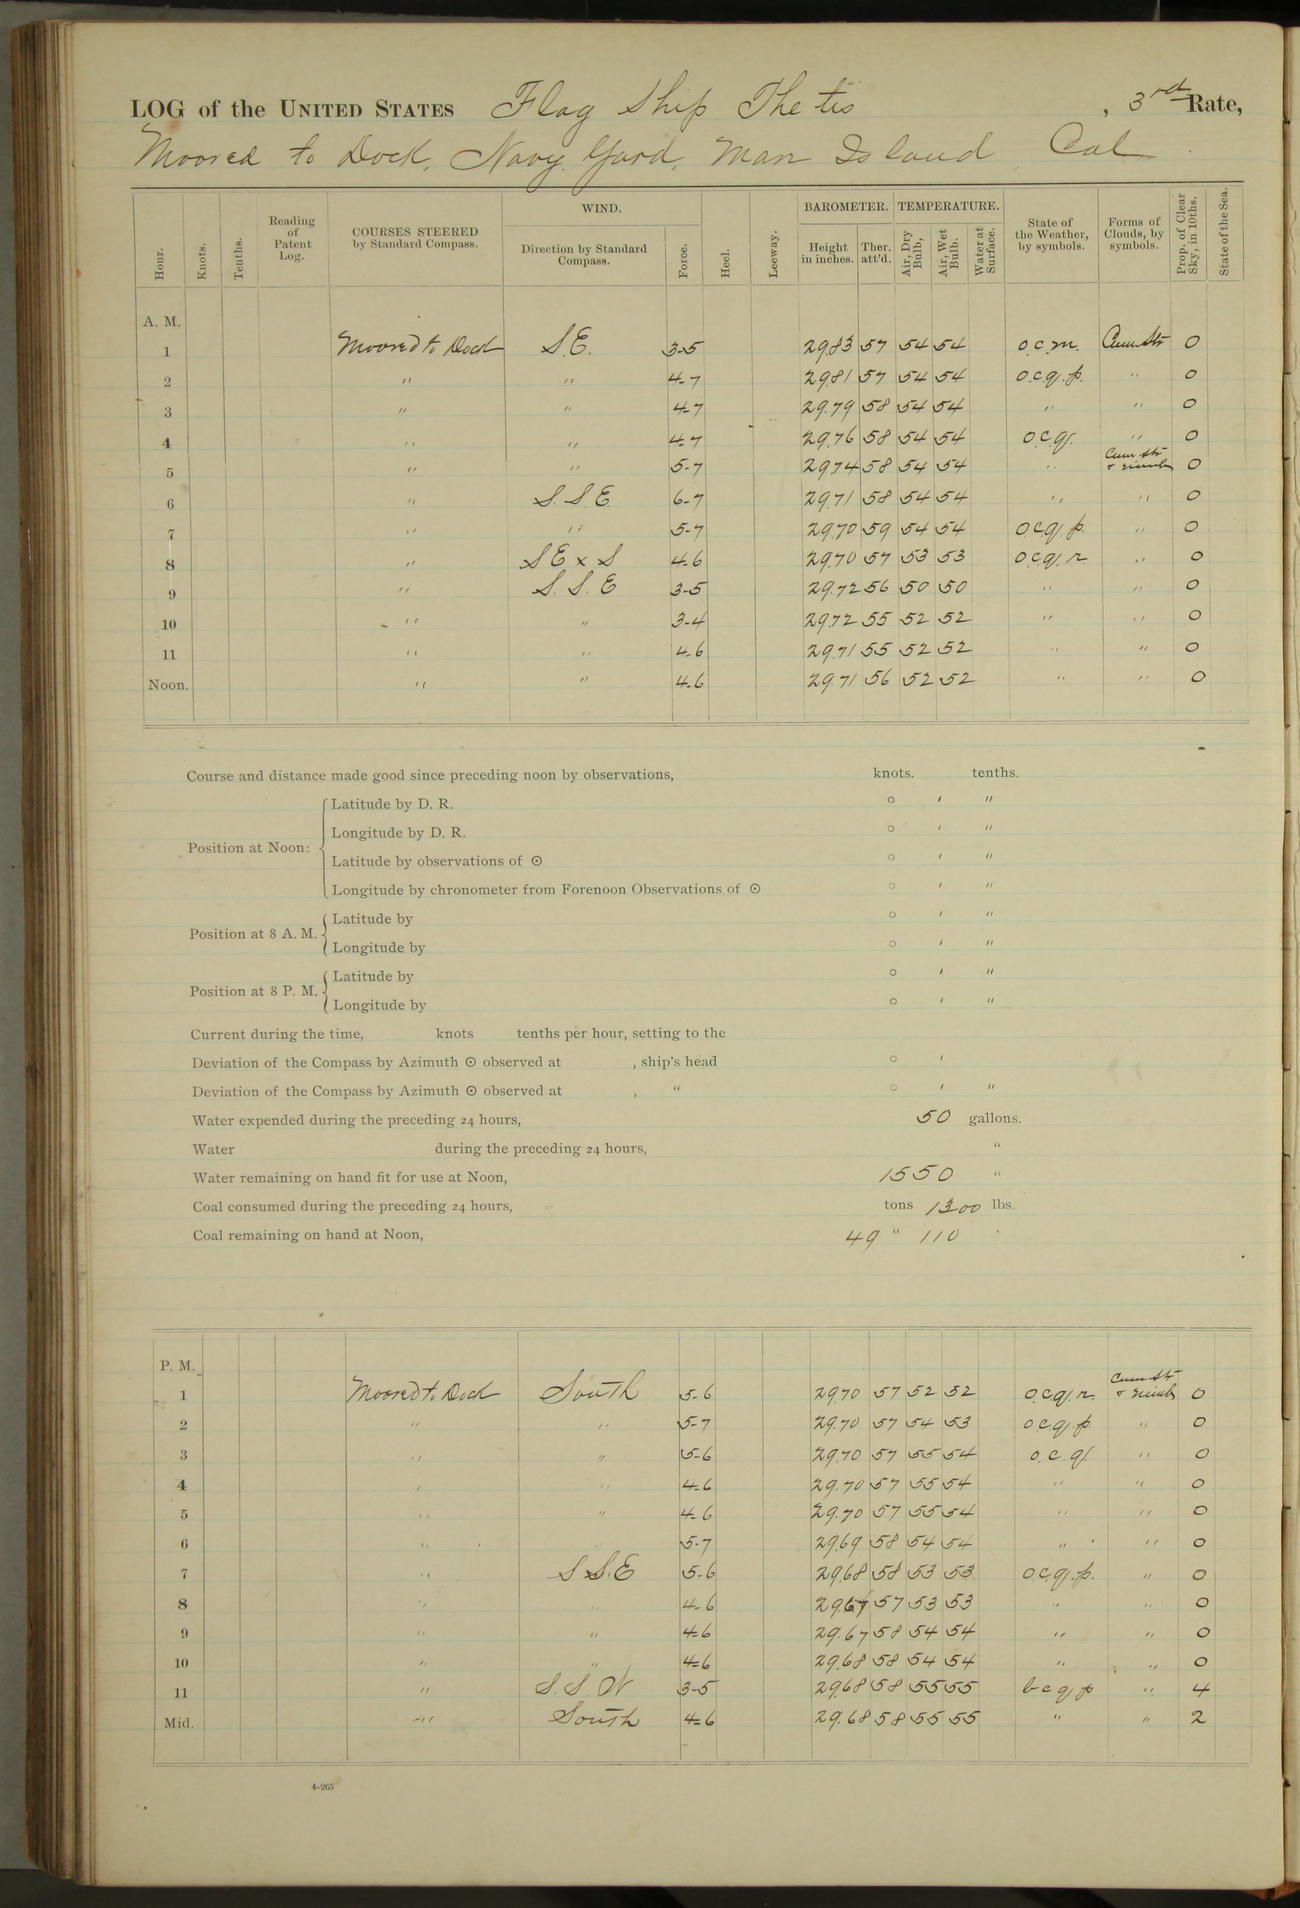 LOG of the UNITED STATES Flag Ship Thetis , 3rd Rate,
Moored to Dock, Navy Yard, Mare Island Cal
Hour. Knots. Tenths. Reading of Patent Log. COURSES STEERED by Standard Compass. WIND. Direction by Standard Compass. Force. Heel. Leeway. BAROMETER. Height in inches. Ther. att'd. TEMPERATURE. Air, Dry Bulb, Air, Wet Bulb. Water at Surface. State of the Weather, by symbols. Forms of Clouds, by symbols. Prop. of Clear Sky, in 10ths. State of the Sea.
A. M.
1 Moored to Dock S.E. 3-5 29.83 57 54 54 o.c.m. Cum Str 0
2 " " 4-7 29.81 57 54 54 o.c.q.p. " 0
3 " " 4-7 29.79 58 54 54 " " 0
4 " " 4-7 29.76 58 54 54 o.c.q. " 0
5 " " 5-7 29.74 58 54 54 " Cum Str & nimb 0
6 " S.S.E. 6-7 29.71 58 54 54 " " 0
7 " " 5-7 29.70 59 54 54 o.c.q.p. " 0
8 " SE x S 4-6 29.70 57 53 53 o.c.q.r. " 0
9 " S.S.E 3-5 29.72 56 50 50 " " 0
10 " " 3-4 29.72 55 52 52 " " 0
11 " " 4-6 29.71 55 52 52 " " 0
Noon. " " 4-6 29.71 56 52 52 " " 0
Course and distance made good since preceding noon by observations, knots. tenths.
Position at Noon: Latitude by D. R. ° ' "
Longitude by D. R. ° ' "
Latitude by observations of ⊙ ° ' "
Longitude by chronometer from Forenoon Observations of ⊙ ° ' "
Position at 8 A. M. Latitude by ° ' "
Longitude by ° ' "
Position at 8 P. M. Latitude by ° ' "
Longitude by ° ' "
Current during the time, knots tenths per hour, setting to the
Deviation of the Compass by Azimuth ⊙ observed at , ship's head ° '
Deviation of the Compass by Azimuth ⊙ observed at , " ° ' "
Water expended during the preceding 24 hours, 50 gallons.
Water during the preceding 24 hours, "
Water remaining on hand fit for use at Noon, 1550 "
Coal consumed during the preceding 24 hours, tons 1300 lbs.
Coal remaining on hand at Noon, 49 " 110 "
P. M.
1 Moored to Dock South 5-6 29.70 57 52 52 o.c.q.r. Cum Str & nimb 0
2 " " 5-7 29.70 57 54 53 o.c.q.p. " 0
3 " " 5-6 29.70 57 55 54 o.c.q. " 0
4 " " 4-6 29.70 57 55 54 " " 0
5 " " 4-6 29.70 57 55 54 " " 0
6 " " 5-7 29.69 58 54 54 " " 0
7 " S.S.E 5-6 29.68 58 53 53 o.c.q.p. " 0
8 " " 4-6 29.67 57 53 53 " " 0
9 " " 4-6 29.67 58 54 54 " " 0
10 " " 4-6 29.68 58 54 54 " " 0
11 " S.S.W 3-5 29.68 58 55 55 b c q p " 4
Mid. " South 4-6 29.68 58 55 55 " " 2
4-265